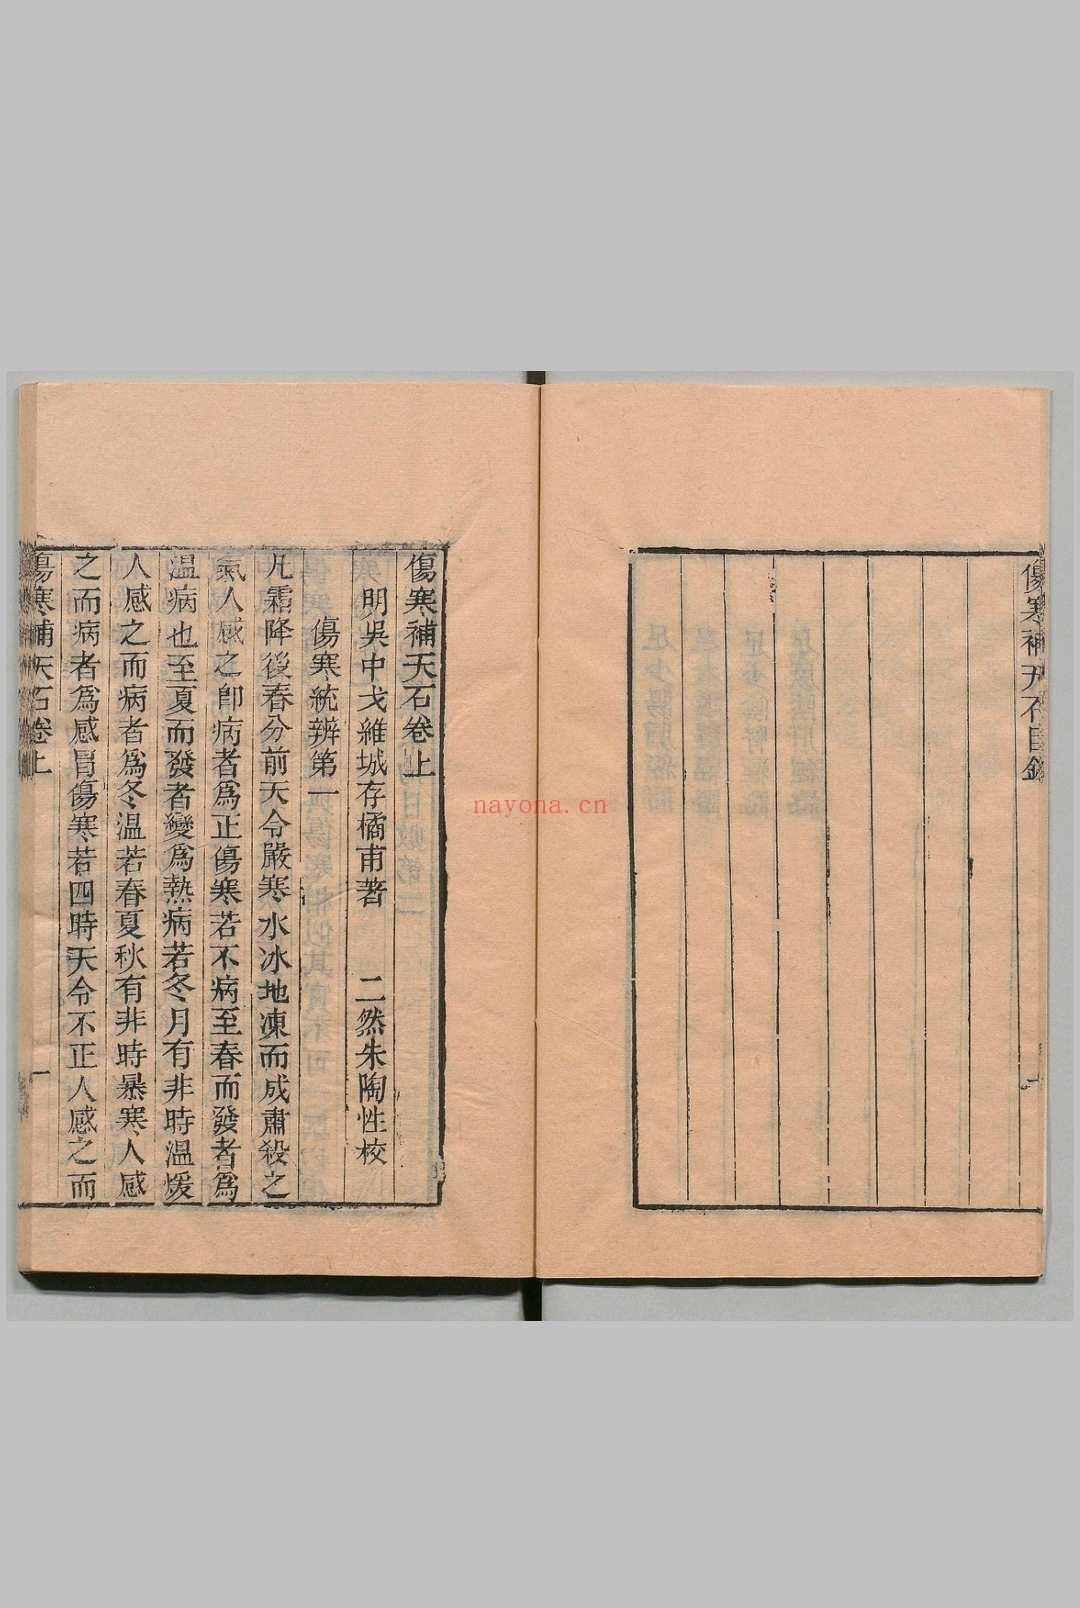 傷寒補天石目錄
一
傷寒補天石卷上
明吳中戈維城存橘甫著　二然朱陶性校
傷寒統辨第一
凡霜降後春分前天令嚴寒水冰地凍而成肅殺之
氣人感之卽病者爲正傷寒若不病至春而發者爲
温病也至夏而發者變爲熱病若冬月有非時温煖
人感之而病者爲冬温若春夏秋有非時暴寒人感
之而病者爲感冒傷寒若四時天令不正人感之而
傷寒補天石卷上
一
nayona.cn